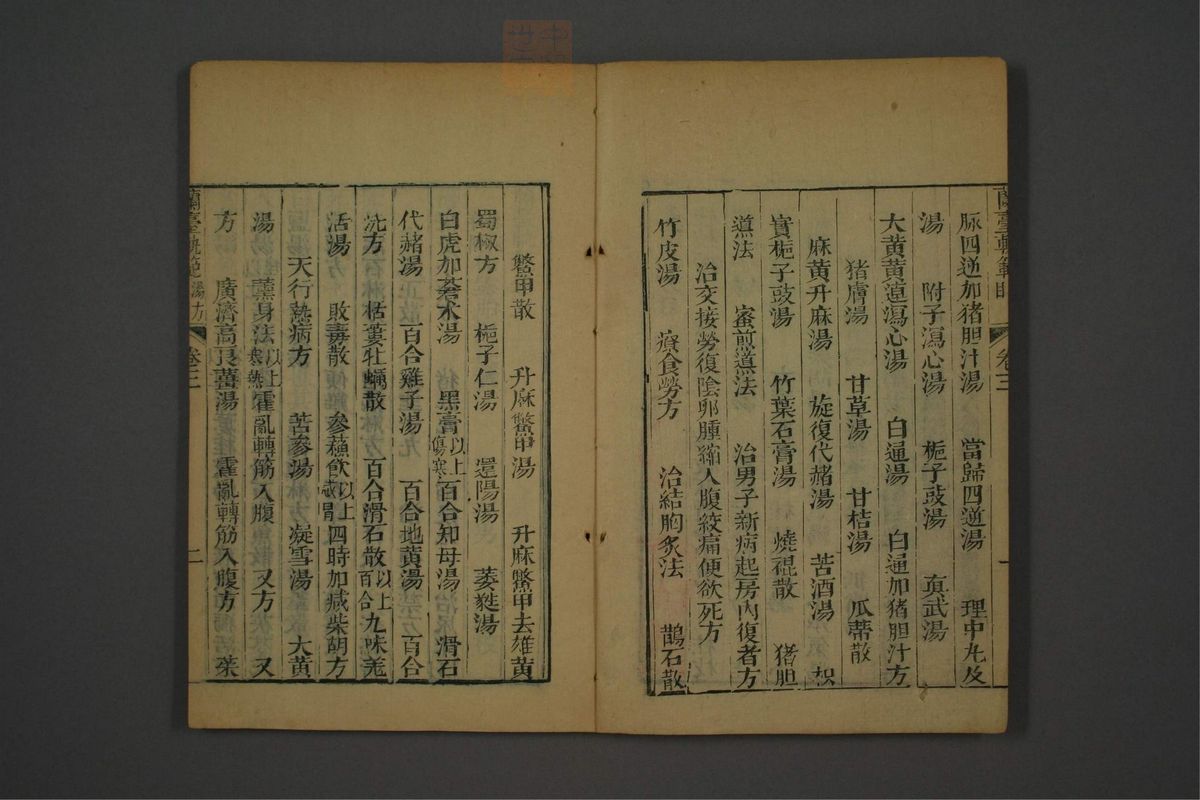 蘭臺軌範目 卷三 一
脉四逆加猪胆汁湯 當歸四逆湯 理中丸及
湯 附子瀉心湯 梔子豉湯 真武湯
大黄黄連瀉心湯 白通湯 白通加猪胆汁方
猪膚湯 甘草湯 甘桔湯 瓜蒂散
麻黄升麻湯 旋復代赭湯 苦酒湯 枳
實梔子豉湯 竹葉石膏湯 燒裩散 猪胆
導法 蜜煎導法 治男子新病起房内復者方
治交接勞復陰卵腫縮人腹絞痛便欲死方
竹皮湯 療食勞方 治結胸炙法 鵲石散
鱉甲散 升麻鱉甲湯 升麻鱉甲去雄黄
蜀椒方 梔子仁湯 還陽湯 萎蕤湯
白虎加蒼术湯 黑膏以上傷寒 百合知母湯 滑石
代赭湯 百合雞子湯 百合地黄湯 百合
洗方 栝蔞牡蠣散 百合滑石散以上百合 九味羌
活湯 敗毒散 參蘇飲以上 四時加減柴胡方
天行熱病方 苦參湯 凝雪湯 大黄
湯 薰身法以上寒熱 霍亂轉筋入腹 又方 又
方 廣濟高良薑湯 霍亂轉筋入腹方 茱
蘭臺軌範 湯方 卷三 二